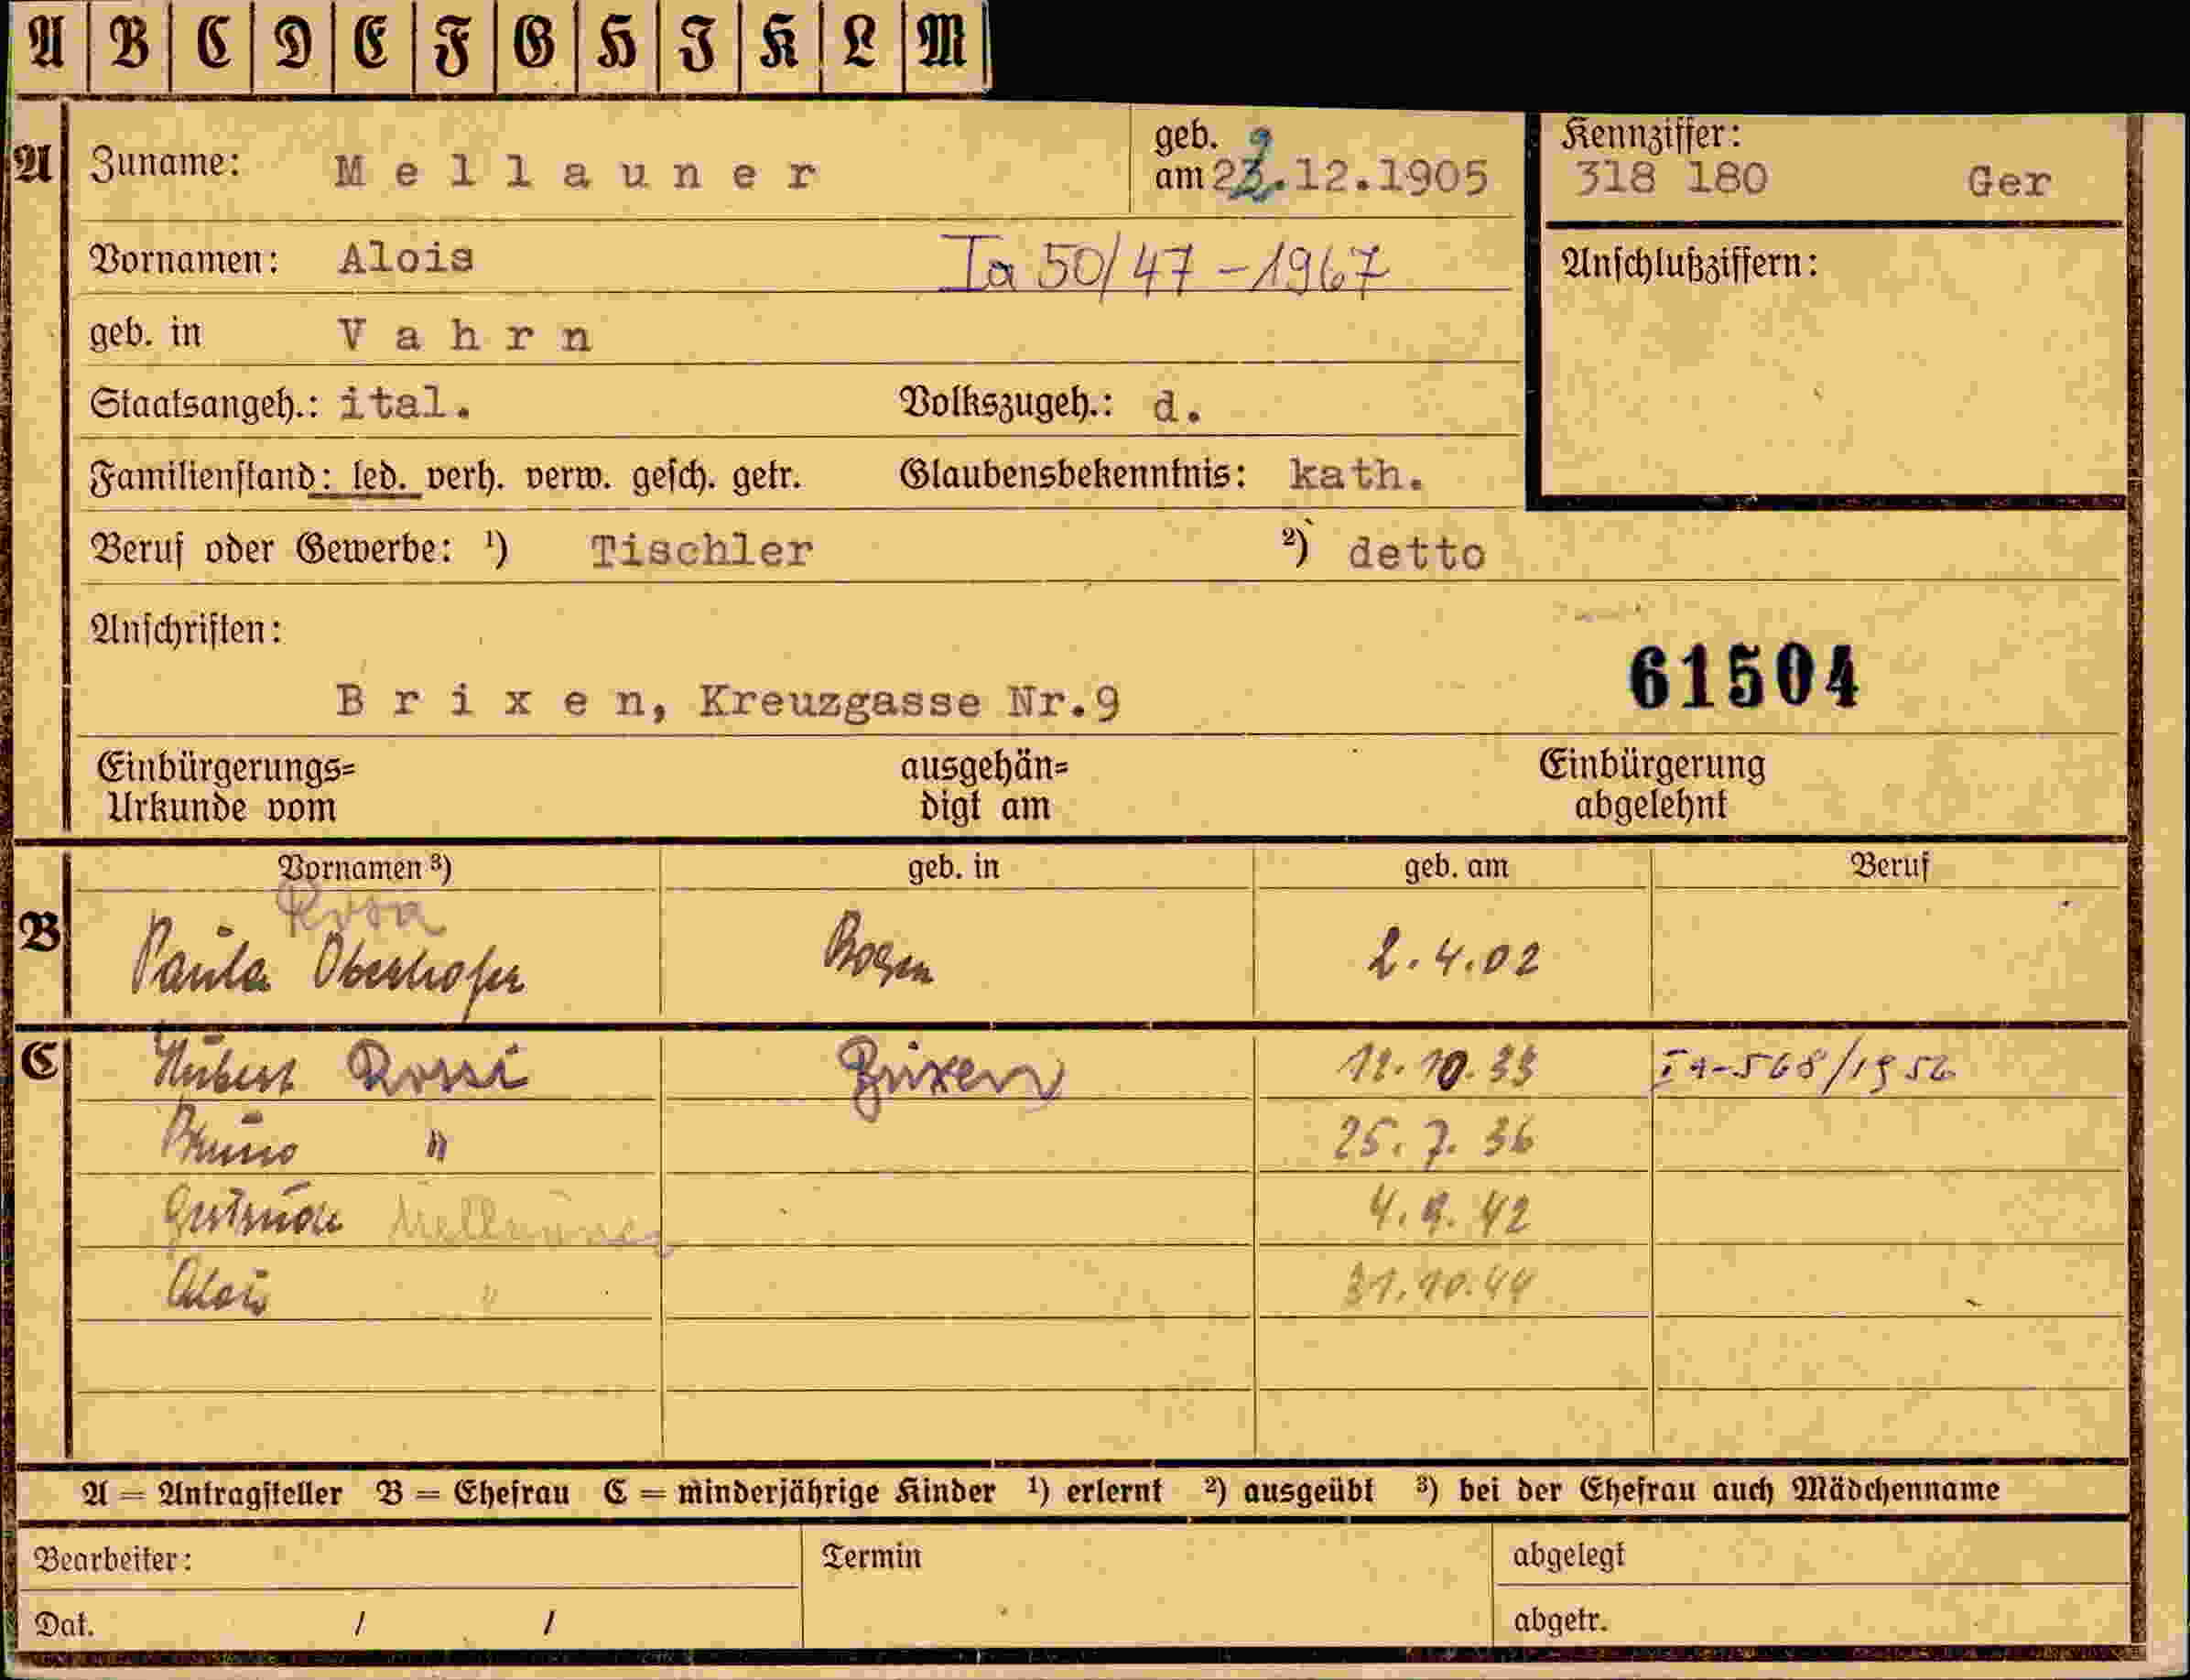 A B C D E F G H I K L M
A Zuname: Mellauner geb. am 29.12.1905 Kennziffer: 318 180 Ger
Vornamen: Alois Ia 50/47-1967 Anschlußziffern:
geb. in Vahrn
Staatsangeh.: ital. Volkszugeh.: d.
Familienstand: led. verh. verw. gesch. getr. Glaubensbekenntnis: kath.
Beruf oder Gewerbe: ¹) Tischler ²) detto
Anschriften:
61504
Brixen, Kreuzgasse Nr.9
Einbürgerungs= ausgehän= Einbürgerung
Urkunde vom digt am abgelehnt
Vornamen ³) geb. in geb. am Beruf
Rosa
B Paula Oberhofer Bozen 2.4.02
C Hubert Rossi Brixen 12.10.33 Ia-568/1956
Bruno " 25.7.36
Gertrude Mellauner 4.9.42
Alois " 31.10.44
A = Antragsteller B = Ehefrau C = minderjährige Kinder ¹) erlernt ²) ausgeübt ³) bei der Ehefrau auch Mädchenname
Bearbeiter: Termin abgelegt
Dat. / / abgetr.